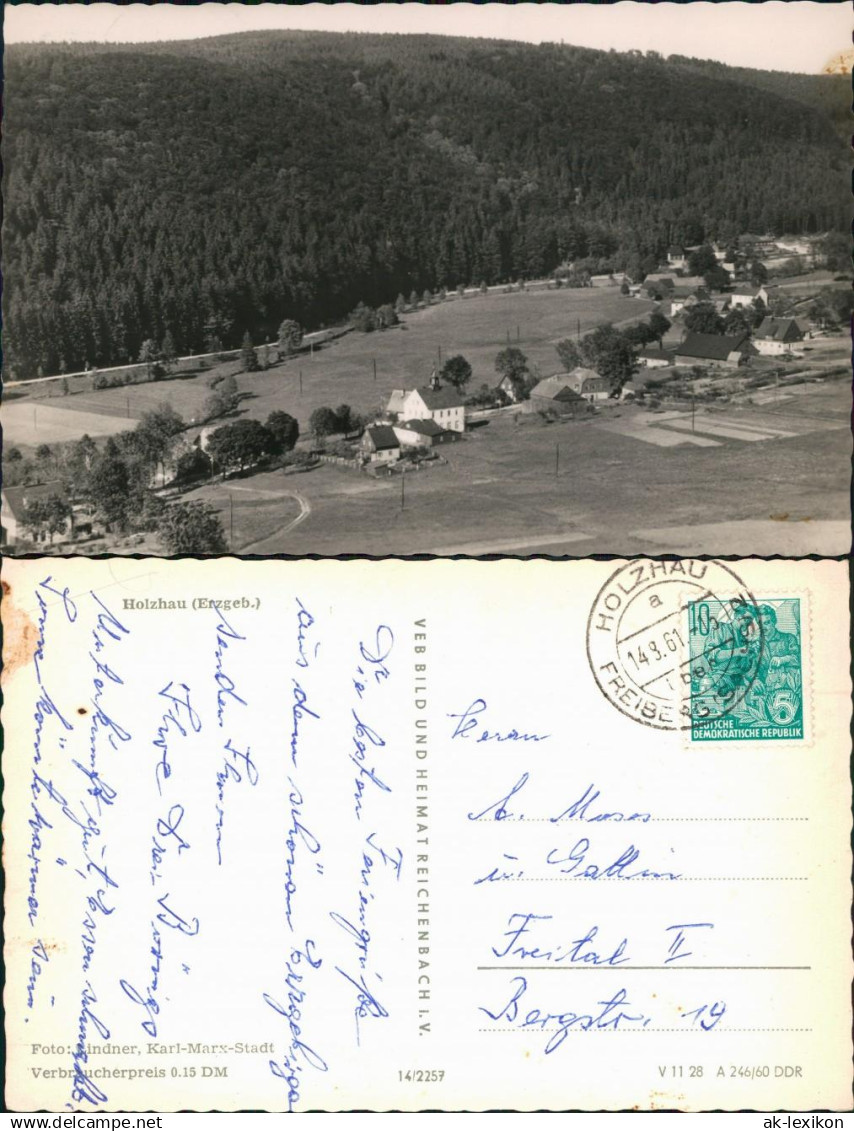 Holzhau (Erzgeb.)
Die besten Feriengrüße
aus dem schönen Erzgebirge
senden Ihnen
Ihre Drei
Unterkunft gut, Essen schmeckt,
könnte wärmer sein.
VEB BILD UND HEIMAT REICHENBACH I. V.
HOLZHAU
a
14.8.61
FREIBERG
10
5
DEUTSCHE
DEMOKRATISCHE REPUBLIK
Herrn
A. Moses
u. Gattin
Freital II
Bergstr. 19
Foto: Lindner, Karl-Marx-Stadt
Verbraucherpreis 0.15 DM
14/2257
V 11 28 A 246/60 DDR
delcampe.net
ak-lexikon